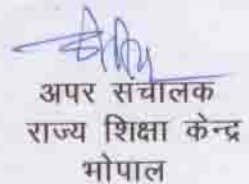 अपर संचालक
राज्य शिक्षा केन्द्र
भोपाल